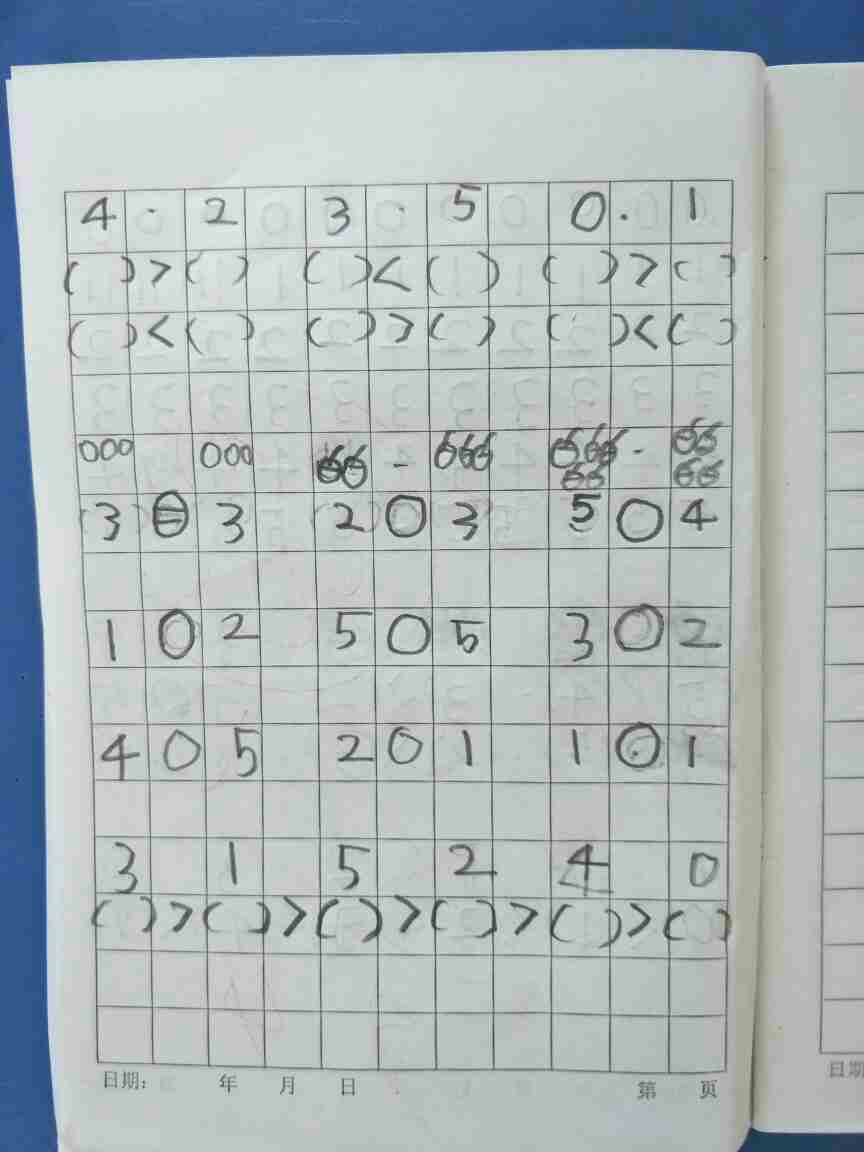 4 · 2 3 · 5 0 · 1
( ) > ( ) ( ) < ( ) ( ) > ( )
( ) < ( ) ( ) > ( ) ( ) < ( )
000 000 - -
3 = 3 2 ○ 3 5 ○ 4
1 ○ 2 5 ○ 5 3 ○ 2
4 ○ 5 2 ○ 1 1 ○ 1
3 1 5 2 4 0
( ) > ( ) > ( ) > ( ) > ( ) > ( )
日期: 年 月 日 第 页
日期